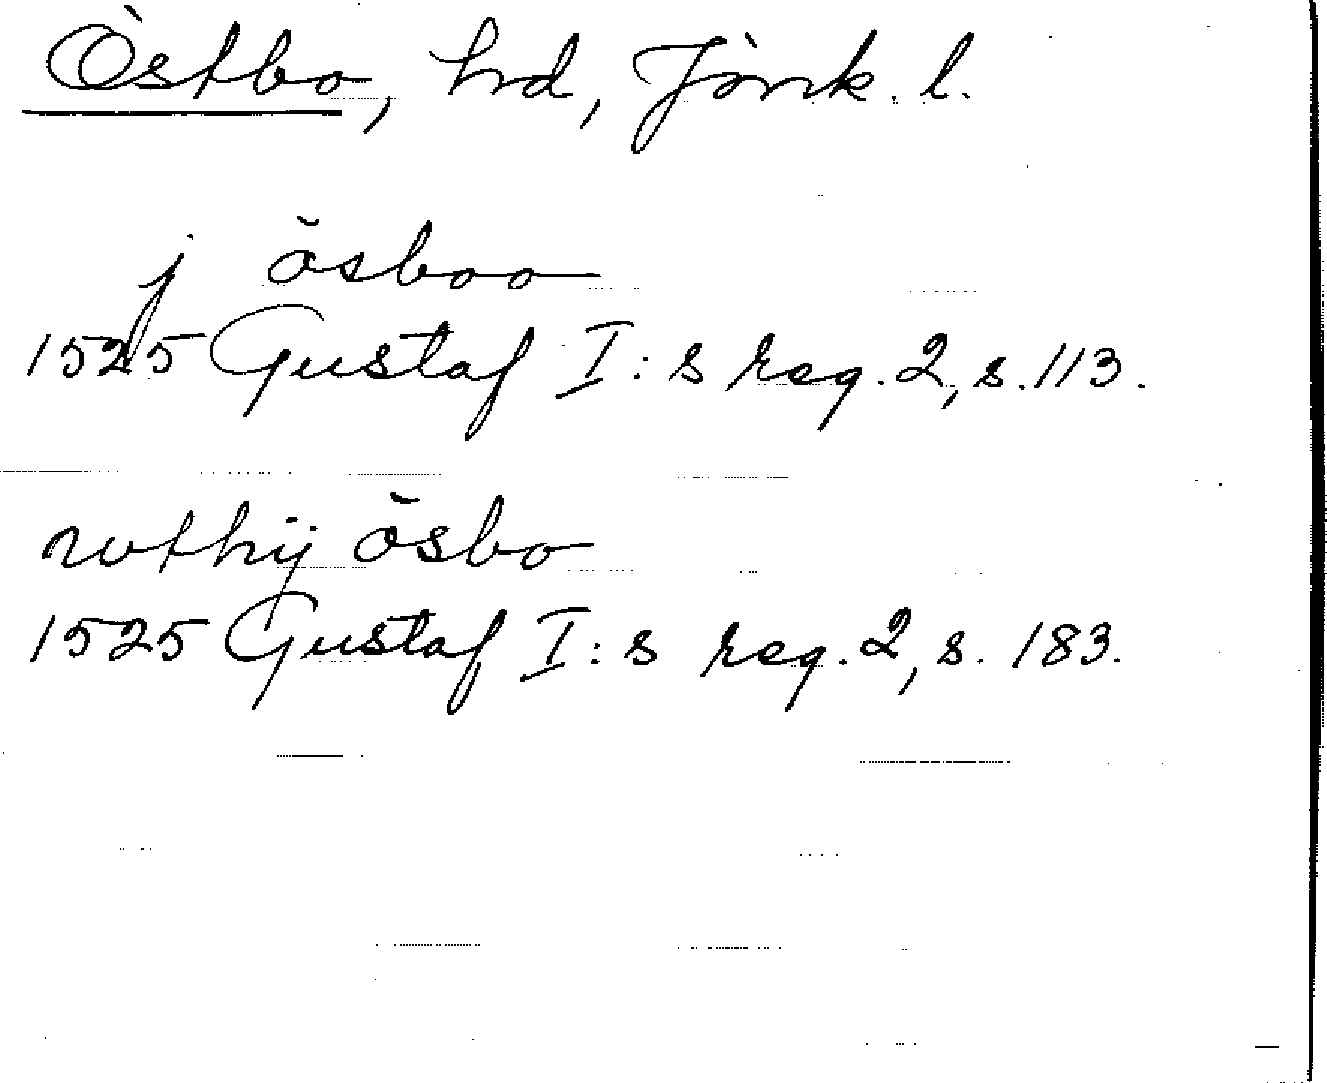 Östbo, hd, Jönk. l.
j ösboo
1525 Gustaf I:s reg. 2, s. 113.
wthij ösbo
1525 Gustaf I:s reg. 2, s. 183.